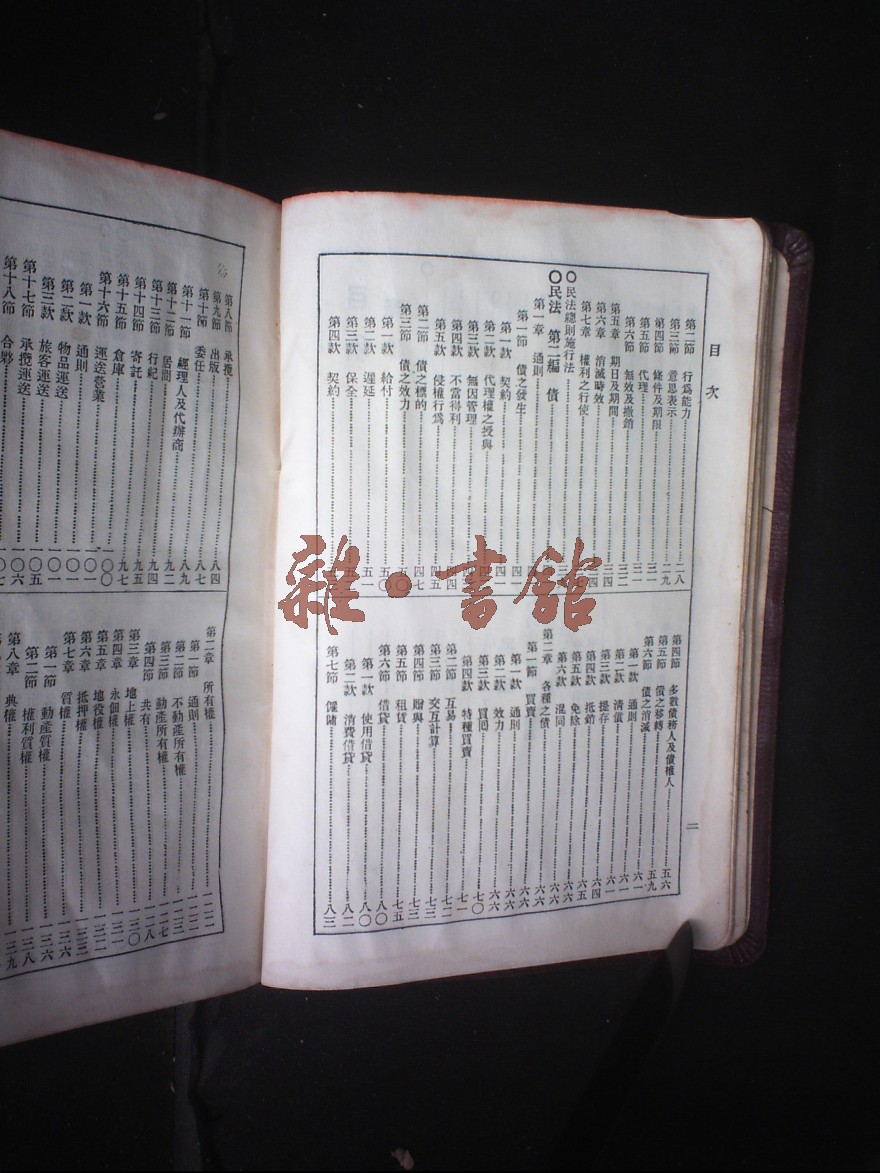 目次
第二節 行爲能力 二八
第三節 意思表示 二九
第四節 條件及期限 三一
第五節 代理 三一
第六節 無效及撤銷 三二
第五章 期日及期間 三四
第六章 消滅時效
第七章 權利之行使
〇〇民法總則施行法
〇民法 第二編 債
第一章 通則
第一節 債之發生
第一款 契約
第二款 代理權之授與
第三款 無因管理
第四款 不當得利 四四
第五款 侵權行爲 四五
第二節 債之標的 四七
第三節 債之效力 五〇
第一款 給付 五〇
第二款 遲延 五一
第三款 保全
第四款 契約
第四節 多數債務人及債權人 五六
第五節 債之移轉 五九
第六節 債之消滅 六一
第一款 通則 六一
第二款 清償 六一
第三款 提存 六四
第四款 抵銷 六五
第五款 免除 六六
第六款 混同 六六
第二章 各種之債 六六
第一節 買賣 六六
第一款 通則 六六
第二款 效力 六六
第三款 買回 七〇
第四款 特種買賣 七一
第二節 互易 七二
第三節 交互計算 七三
第四節 贈與 七三
第五節 租賃 七五
第六節 借貸 八〇
第一款 使用借貸 八〇
第二款 消費借貸 八二
第七節 僱傭 八三
二
第八節 承攬 八四
第九節 出版 八七
第十節 委任 八九
第十一節 經理人及代辦商
第十二節 居間 九二
第十三節 行紀 九四
第十四節 寄託 九五
第十五節 倉庫 九七
第十六節 運送營業 一〇〇
第一款 通則 一〇一
第二款 物品運送 一〇一
第三款 旅客運送 一〇五
第十七節 承攬運送 一〇六
第十八節 合夥 一〇七
第二章 所有權 一二二
第一節 通則 一二二
第二節 不動產所有權 一二三
第三節 動產所有權 一二七
第四節 共有 一二八
第三章 地上權 一三〇
第四章 永佃權 一三一
第五章 地役權 一三二
第六章 抵押權 一三三
第七章 質權 一三六
第一節 動產質權 一三六
第二節 權利質權 一三八
第八章 典權 一三九
雜·書館